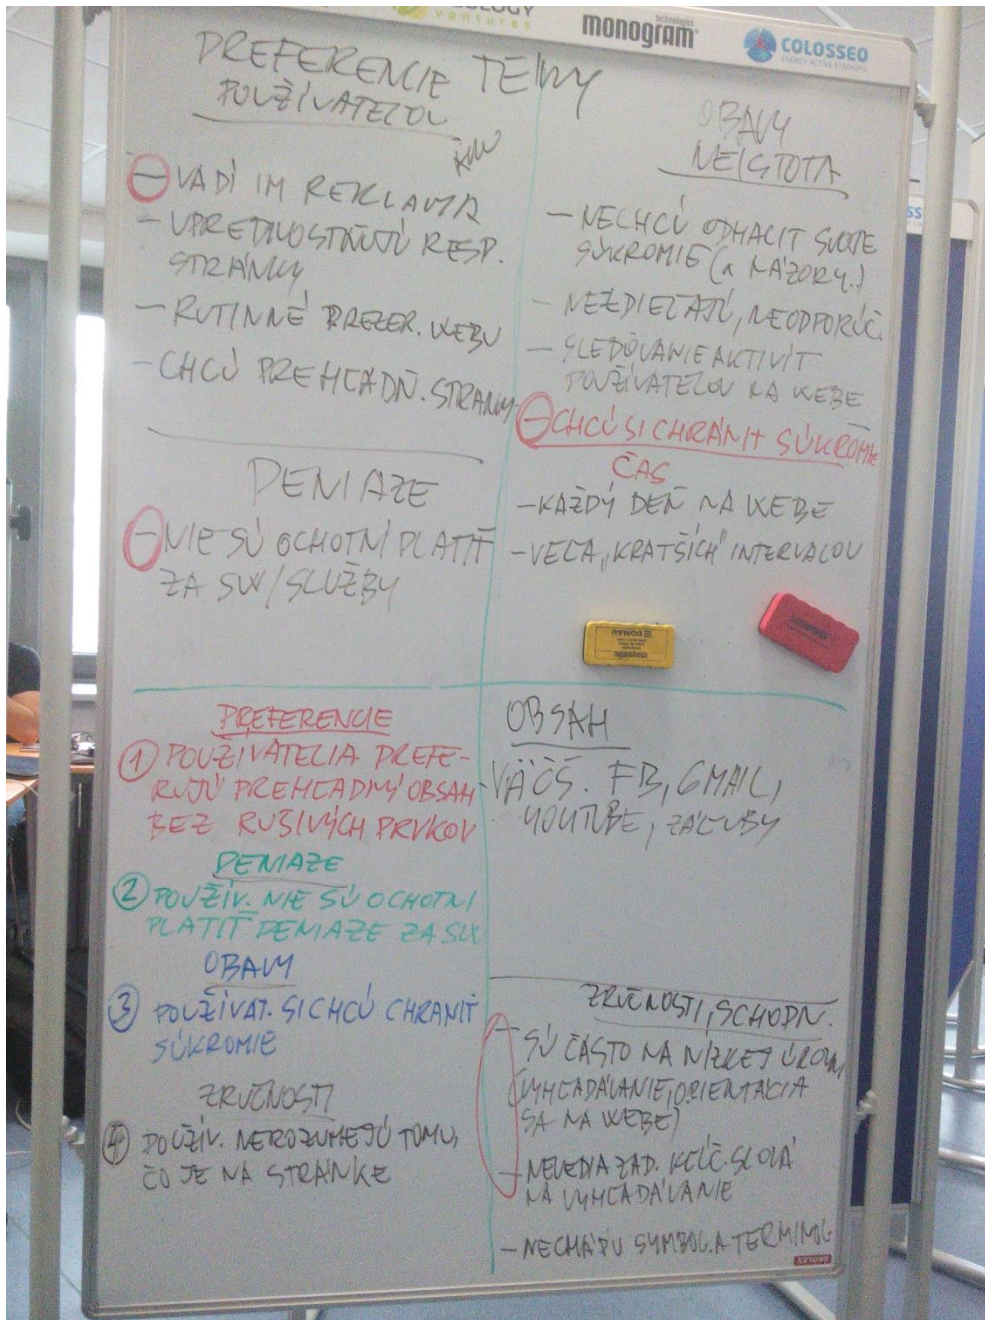 OLOGY
ventures
technologies
monogram
COLOSSEO
ENERGY ACTIVE STADIUMS
PREFERENCIE TÉMY
POUŽÍVATEĽOV
- VADÍ IM REKLAMA
- UPREDNOSTŇUJÚ RESP.
STRÁNKY
- RUTINNÉ PREZER. WEBU
- CHCÚ PREHĽADN. STRÁNKY
PENIAZE
- NIE SÚ OCHOTNÍ PLATIŤ
ZA SW/SLUŽBY
OBAVY
NEISTOTA
- NECHCÚ ODHALIT SVOJE
SÚKROMIE (A NÁZORY.)
- NEZDIEĽAJÚ, NEODPORÚČ.
- SLEDOVANIE AKTIVÍT
POUŽÍVATEĽOV NA WEBE
- CHCÚ SI CHRÁNIŤ SÚKROMIE
ČAS
- KAŽDÝ DEŇ NA WEBE
- VEĽA „KRATŠÍCH" INTERVALOV
PREFERENCIE
1 POUŽÍVATELIA PREFE-
RUJÚ PREHĽADNÝ OBSAH
BEZ RUŠIVÝCH PRVKOV
PENIAZE
2 POUŽÍV. NIE SÚ OCHOTNI
PLATIŤ PENIAZE ZA SW
OBAVY
3 POUŽÍVAT. SI CHCÚ CHRANIŤ
SÚKROMIE
ZRUČNOSTI
4 POUŽÍV. NEROZUMEJÚ TOMU,
ČO JE NA STRÁNKE
OBSAH
- VÄČŠ. FB, GMAIL,
YOUTUBE, ZÁĽUBY
ZRUČNOSTI, SCHOPN.
- SÚ ČASTO NA NÍZKEJ ÚROVNI
(VYHĽADÁVANIE, ORIENTÁCIA
SA NA WEBE)
- NEVEDIA ZAD. KĽÚČ. SLOVÁ
NA VYHĽADÁVANIE
- NECHÁPU SYMBOL. A TERMINOL.